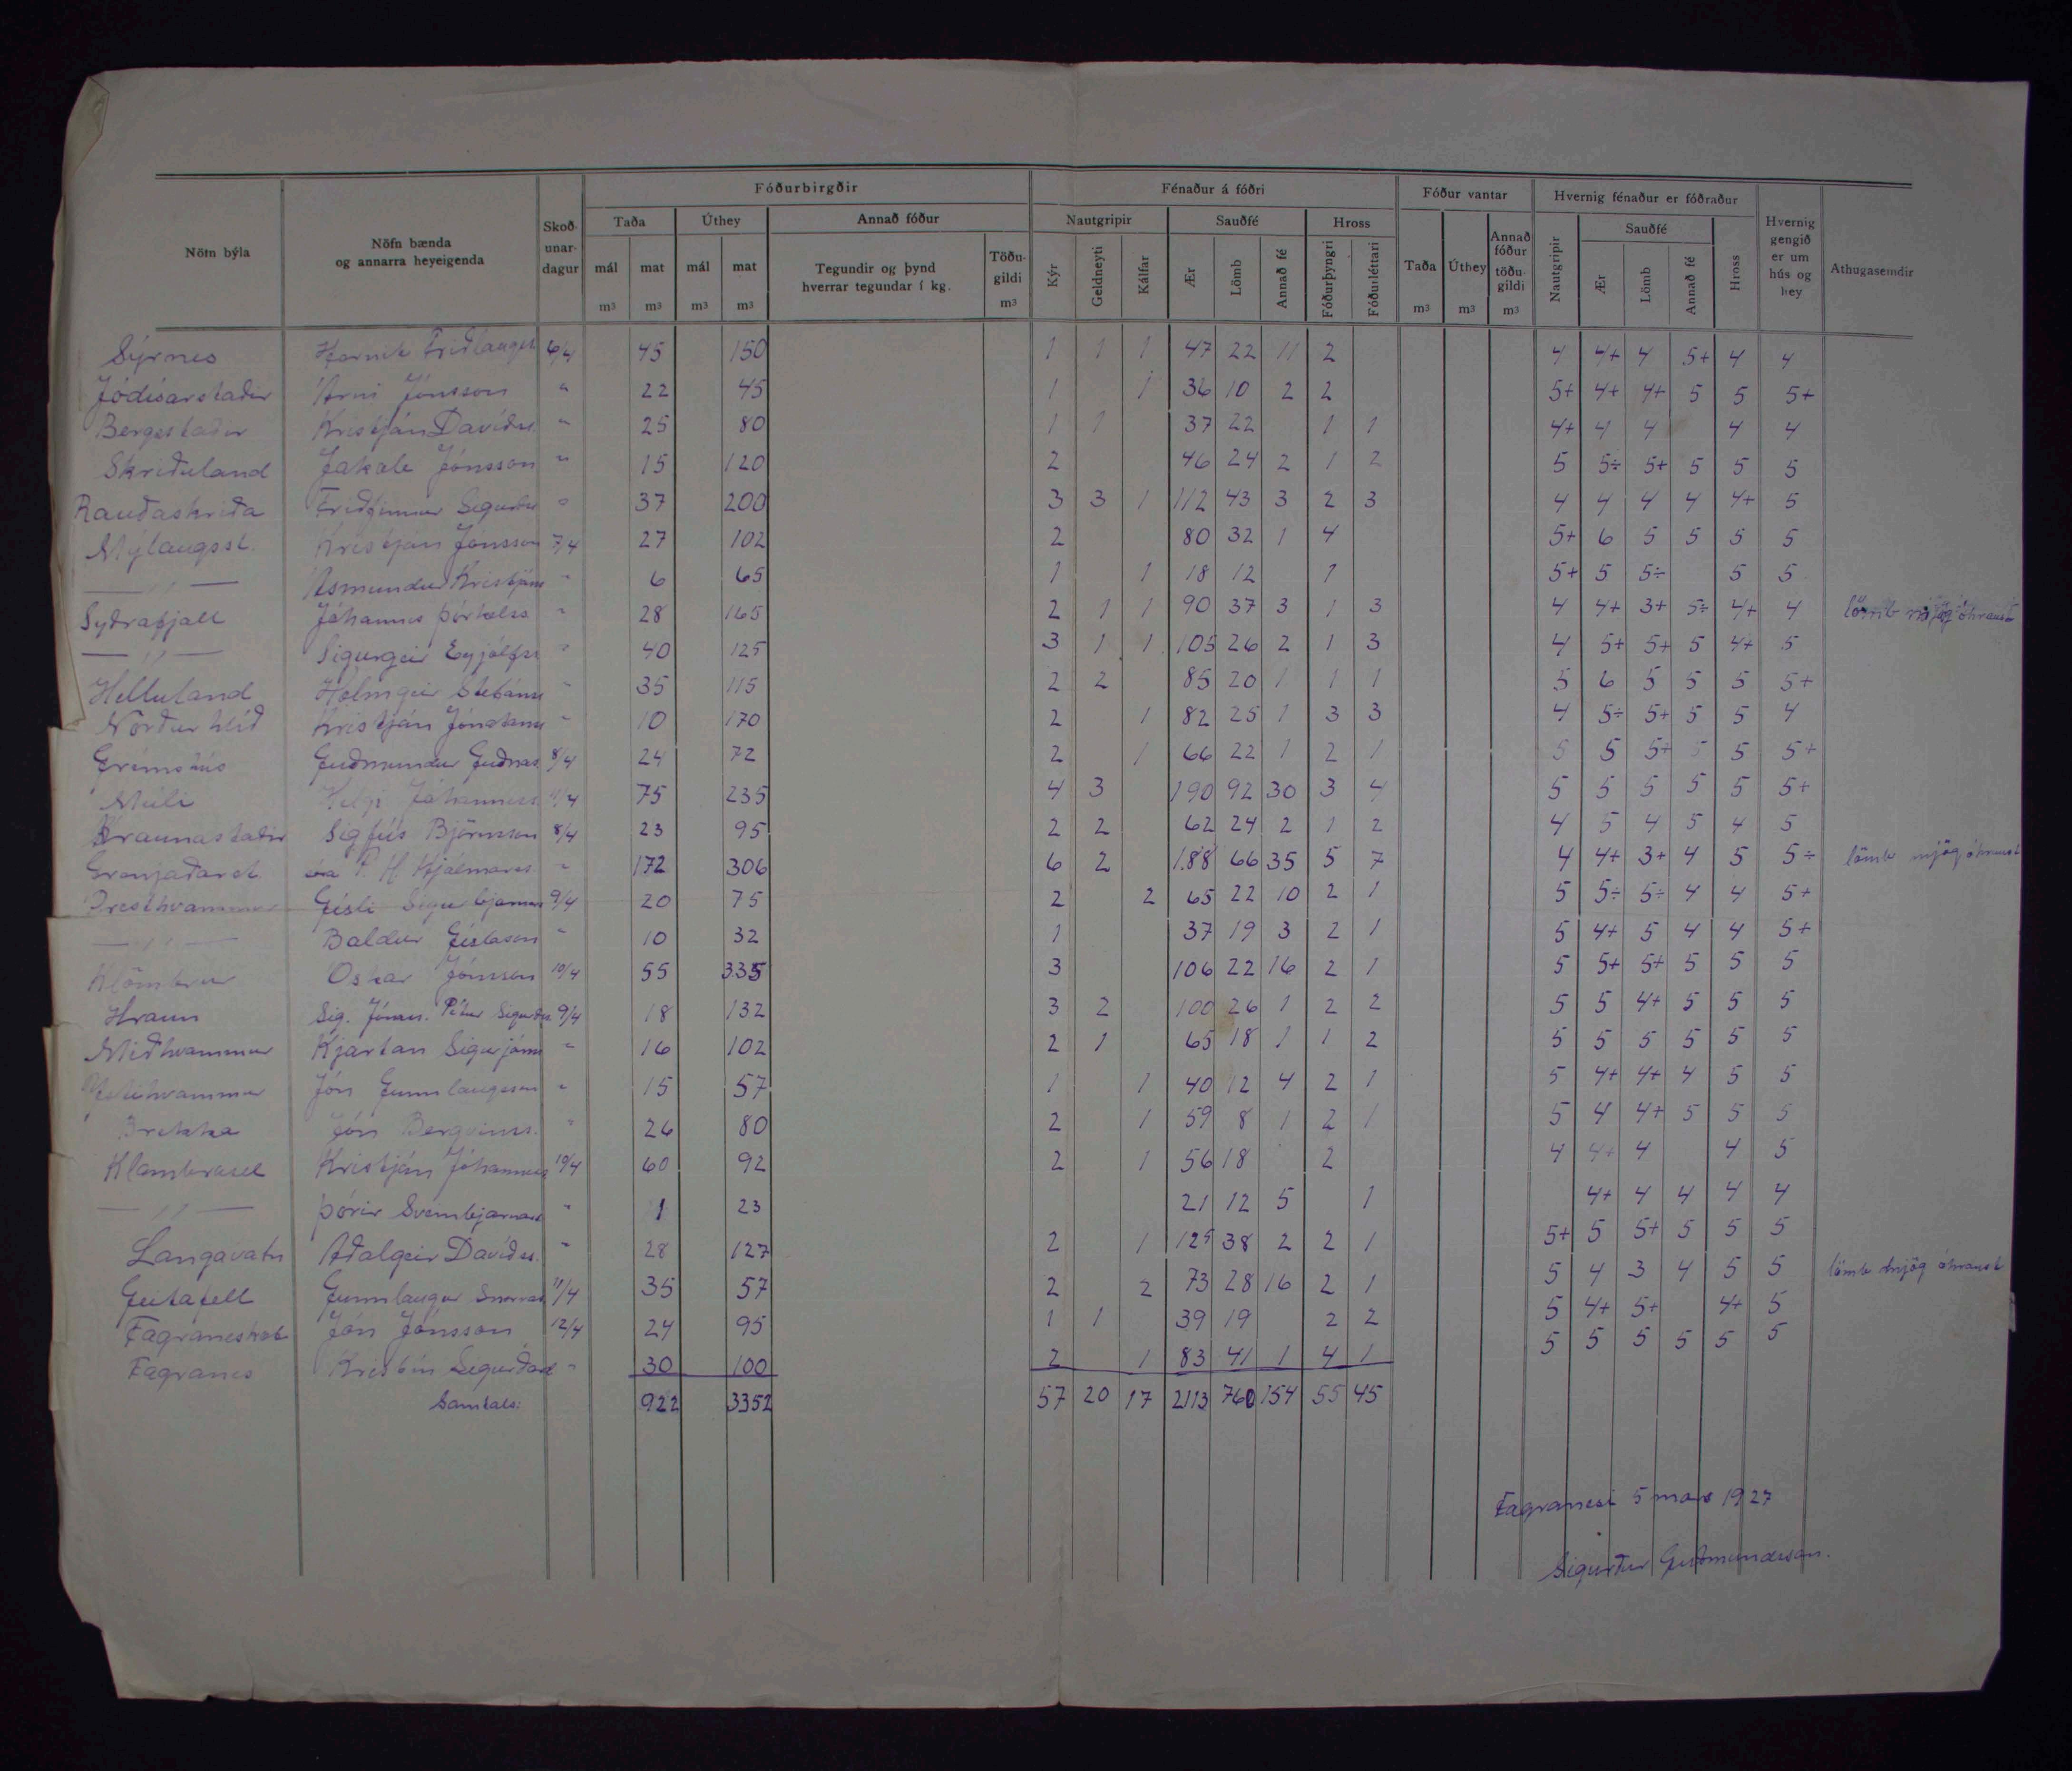 Fóðurbirgðir Fénaður á fóðri Fóður vantar Hvernig fénaður er fóðraður
Nöfn býla
Nöfn bænda og annarra heyeigenda
Skoð- unar- dagur
Taða Úthey Annað fóður
mál m³ mat m³ mál m³ mat m³
Tegundir og þynd hverrar tegundar í kg.
Töðu- gildi m³
Nautgripir Sauðfé Hross
Kýr Geldneyti Kálfar Ær Lömb Annað fé Fóðurþyngri Fóðurléttari
Taða m³ Úthey m³ Annað fóður töðu- gildi m³
Nautgripir Sauðfé Ær Lömb Annað fé Hross
Hvernig gengið er um hús og hey
Athugasemdir
Sýrnes Friðlaugss 6/4 45 150 1 1 1 47 22 11 2 4 4+ 4 5+ 4 4
Jódísarstaðir Árni Jónsson " 22 45 1 1 36 10 2 2 5+ 4+ 4+ 5 5 5+
Bergsstaðir Kristján Davíðss. " 25 80 1 1 37 22 1 1 4+ 4 4 4 4
Skriðuland Jakob Jónsson " 15 120 2 46 24 2 1 2 5 5÷ 5+ 5 5 5
Rauðaskriða Friðfinnur Sigurðss " 37 200 3 3 1 112 43 3 2 3 4 4 4 4 4+ 5
Mýlaugsst. Kristján Jónsson 7/4 27 102 2 80 32 1 4 5+ 6 5 5 5 5
— " — Ásmundur Kristjáns " 6 65 1 1 18 12 1 5+ 5 5÷ 5 5
Syðrafjall Jóhannes Þorkelss " 28 165 2 1 1 90 37 3 1 3 4 4+ 3+ 5÷ 4+ 4 lömb mjög óhraust
— " — Sigurgeir Eyjólfss " 40 125 3 1 1 105 26 2 1 3 4 5+ 5+ 5 4+ 5
Helluland Hólmgeir Stefánss " 35 115 2 2 85 20 1 1 1 5 6 5 5 5 5+
Norðurhlíð Kristján Jónatanss " 10 170 2 1 82 25 1 3 3 4 5÷ 5+ 5 5 4
Grímshús Guðmundur Guðnas. 8/4 24 72 2 1 66 22 1 2 1 5 5 5+ 5 5 5+
Múli Helgi Jóhanness /4 75 235 4 3 190 92 30 3 4 5 5 5 5 5 5+
Hraunastaðir Sigfús Björnsson 8/4 23 95 2 2 62 24 2 1 2 4 5 4 5 4 5
Grenjaðarst. H Hjálmarss. " 172 306 6 2 188 66 35 5 7 4 4+ 3+ 4 5 5÷ lömb mjög óhraust
Presthvammur Gísli Sigurbjörnss 9/4 20 75 2 2 65 22 10 2 1 5 5÷ 5÷ 4 4 5+
— " — Baldur Gíslason " 10 32 1 37 19 3 2 1 5 4+ 5 4 4 5+
Klömbrur Oskar Jónsson 10/4 55 335 3 106 22 16 2 1 5 5+ 5+ 5 5 5
Hraun Sig. Jónass. Pétur Sigurðs. 9/4 18 132 3 2 100 26 1 2 2 5 5 4+ 5 5 5
Miðhvammur Kjartan Sigurjóns " 16 102 2 1 65 18 1 1 2 5 5 5 5 5 5
Ytrihvammur Jón Gunnlaugsson " 15 57 1 1 40 12 4 2 1 5 4+ 4+ 4 5 5
Brekka Jón Bergvinss. " 26 80 2 1 59 8 1 2 1 5 4 4+ 5 5 5
Klambrasel Kristján Jóhanness 10/4 60 92 2 1 56 18 2 4 4+ 4 4 5
— " — Þórir Sveinbjarnars " 1 23 21 12 5 1 4+ 4 4 4 4
Langavatn Aðalgeir Davíðss. " 28 127 2 1 125 38 2 2 1 5+ 5 5+ 5 5 5
Geitafell Gunnlaugur Snorras 11/4 35 57 2 2 73 28 16 2 1 5 4 3 4 5 5 lömb mjög óhraust
Fagraneskot Jón Jónsson 12/4 24 95 1 1 39 19 2 2 5 4+ 5+ 4+ 5
Fagranes Kristín Sigurðard " 30 100 2 1 83 41 1 4 1 5 5 5 5 5 5
Samtals: 922 3352 57 20 17 2113 760 154 55 45
Fagranesi 5 mars 1927
Sigurður Guðmundsson.